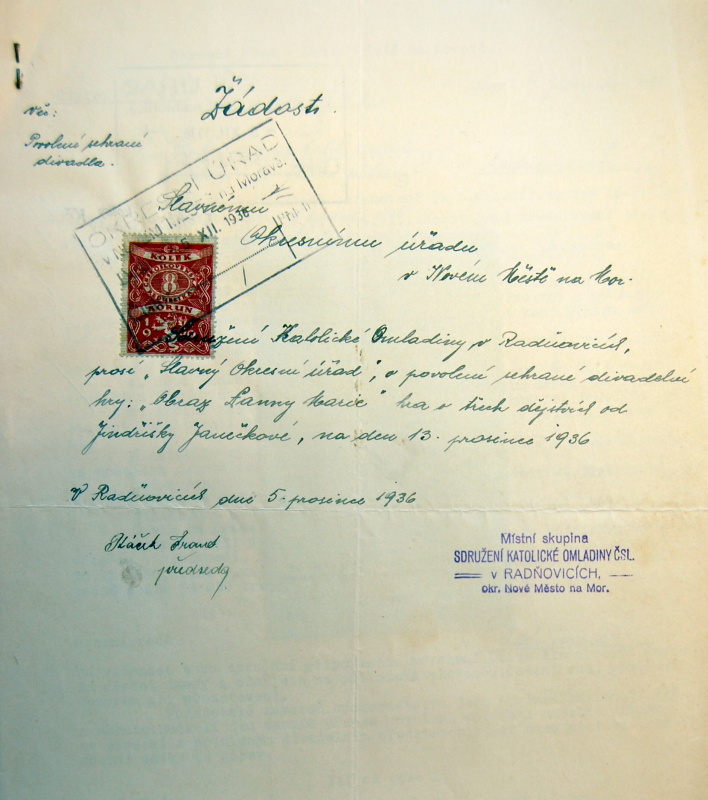 Žádost.
Věc:
Povolení sehrané
divadla.
OKRESNÍ ÚŘAD
na Moravě.
XII. 1936
Slavnému
Okresnímu úřadu
v Novém Městě na Mor.
KOLEK
8
KORUN
Sdružení Katolické Omladiny v Radňovicích,
prosí „Slavný Okresní úřad", o povolení sehrané divadelní
hry: „Obraz Panny Marie" hra o třech dějstvích od
Jindřišky Janečkové, na den 13. prosince 1936
V Radňovicích dne 5. prosince 1936
předseda
Místní skupina
SDRUŽENÍ KATOLICKÉ OMLADINY ČSL.
v RADŇOVICÍCH,
okr. Nové Město na Mor.